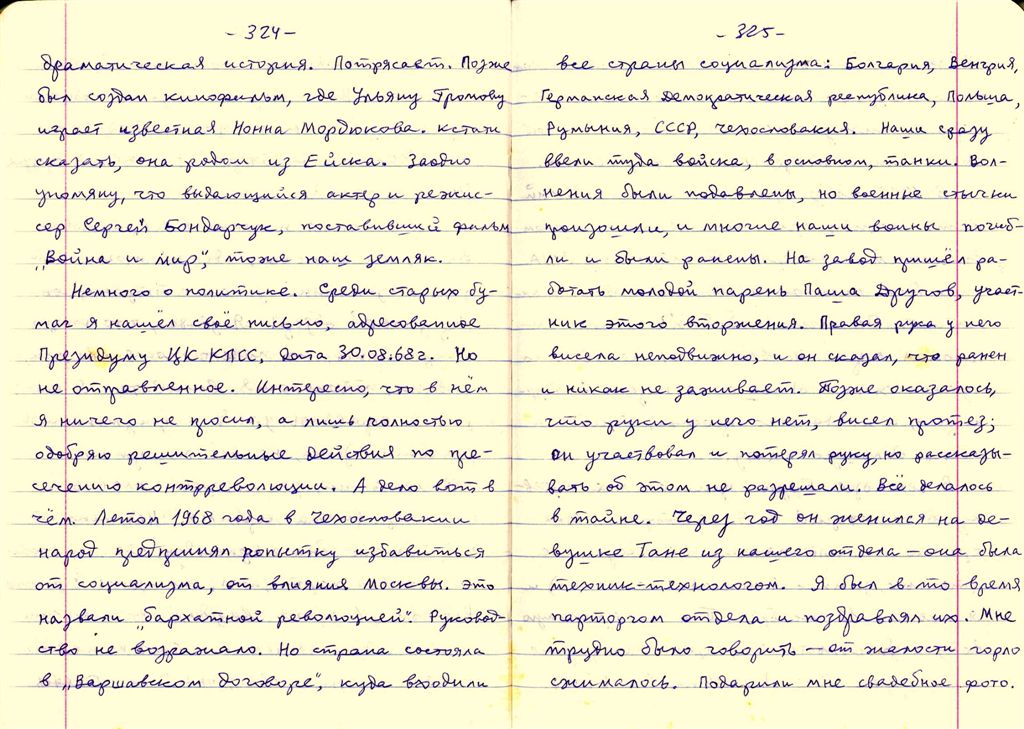 - 324 -
драматическая история. Потрясает. Позже
был создан кинофильм, где Ульяну Громову
играет известная Нонна Мордюкова. кстати
сказать, она родом из Ейска. Заодно
упомяну, что выдающийся актер и режис-
сер Сергей Бондарчук, поставивший фильм
„Война и мир", тоже наш земляк.
Немного о политике. Среди старых бу-
маг я нашёл своё письмо, адресованное
Президуму ЦК КПСС, Дата 30.08.68г. Но
не отправленное. Интересно, что в нём
я ничего не просил, а лишь полностью
одобряю решительные действия по пре-
сечению контрреволюции. А дело вот в
чём. Летом 1968 года в Чехословакии
народ предпринял попытку избавиться
от социализма, от влияния Москвы. Это
назвали „бархатной революцией". Руковод-
ство не возражало. Но страна состояла
в „Варшавском договоре", куда входили
- 325 -
все страны социализма: Болгария, Венгрия,
Германская Демократическая республика, Польша,
Румыния, СССР, Чехословакия. Наши сразу
ввели туда войска, в основном, танки. Вол-
нения были подавлены, но военные стычки
произошли, и многие наши воины погиб-
ли и были ранены. На завод пришёл ра-
ботать молодой парень Паша Другов, участ-
ник этого вторжения. Правая рука у него
висела неподвижно, и он сказал, что ранен
и никак не заживает. Позже оказалось,
что руки у него нет, висел протез;
он участвовал и потерял руку, но рассказы-
вать об этом не разрешали. Всё делалось
в тайне. Через год он женился на де-
вушке Тане из нашего отдела — она была
техник-технологом. Я был в то время
парторгом отдела и поздравлял их. Мне
трудно было говорить — от жалости горло
сжималось. Подарили мне свадебное фото.